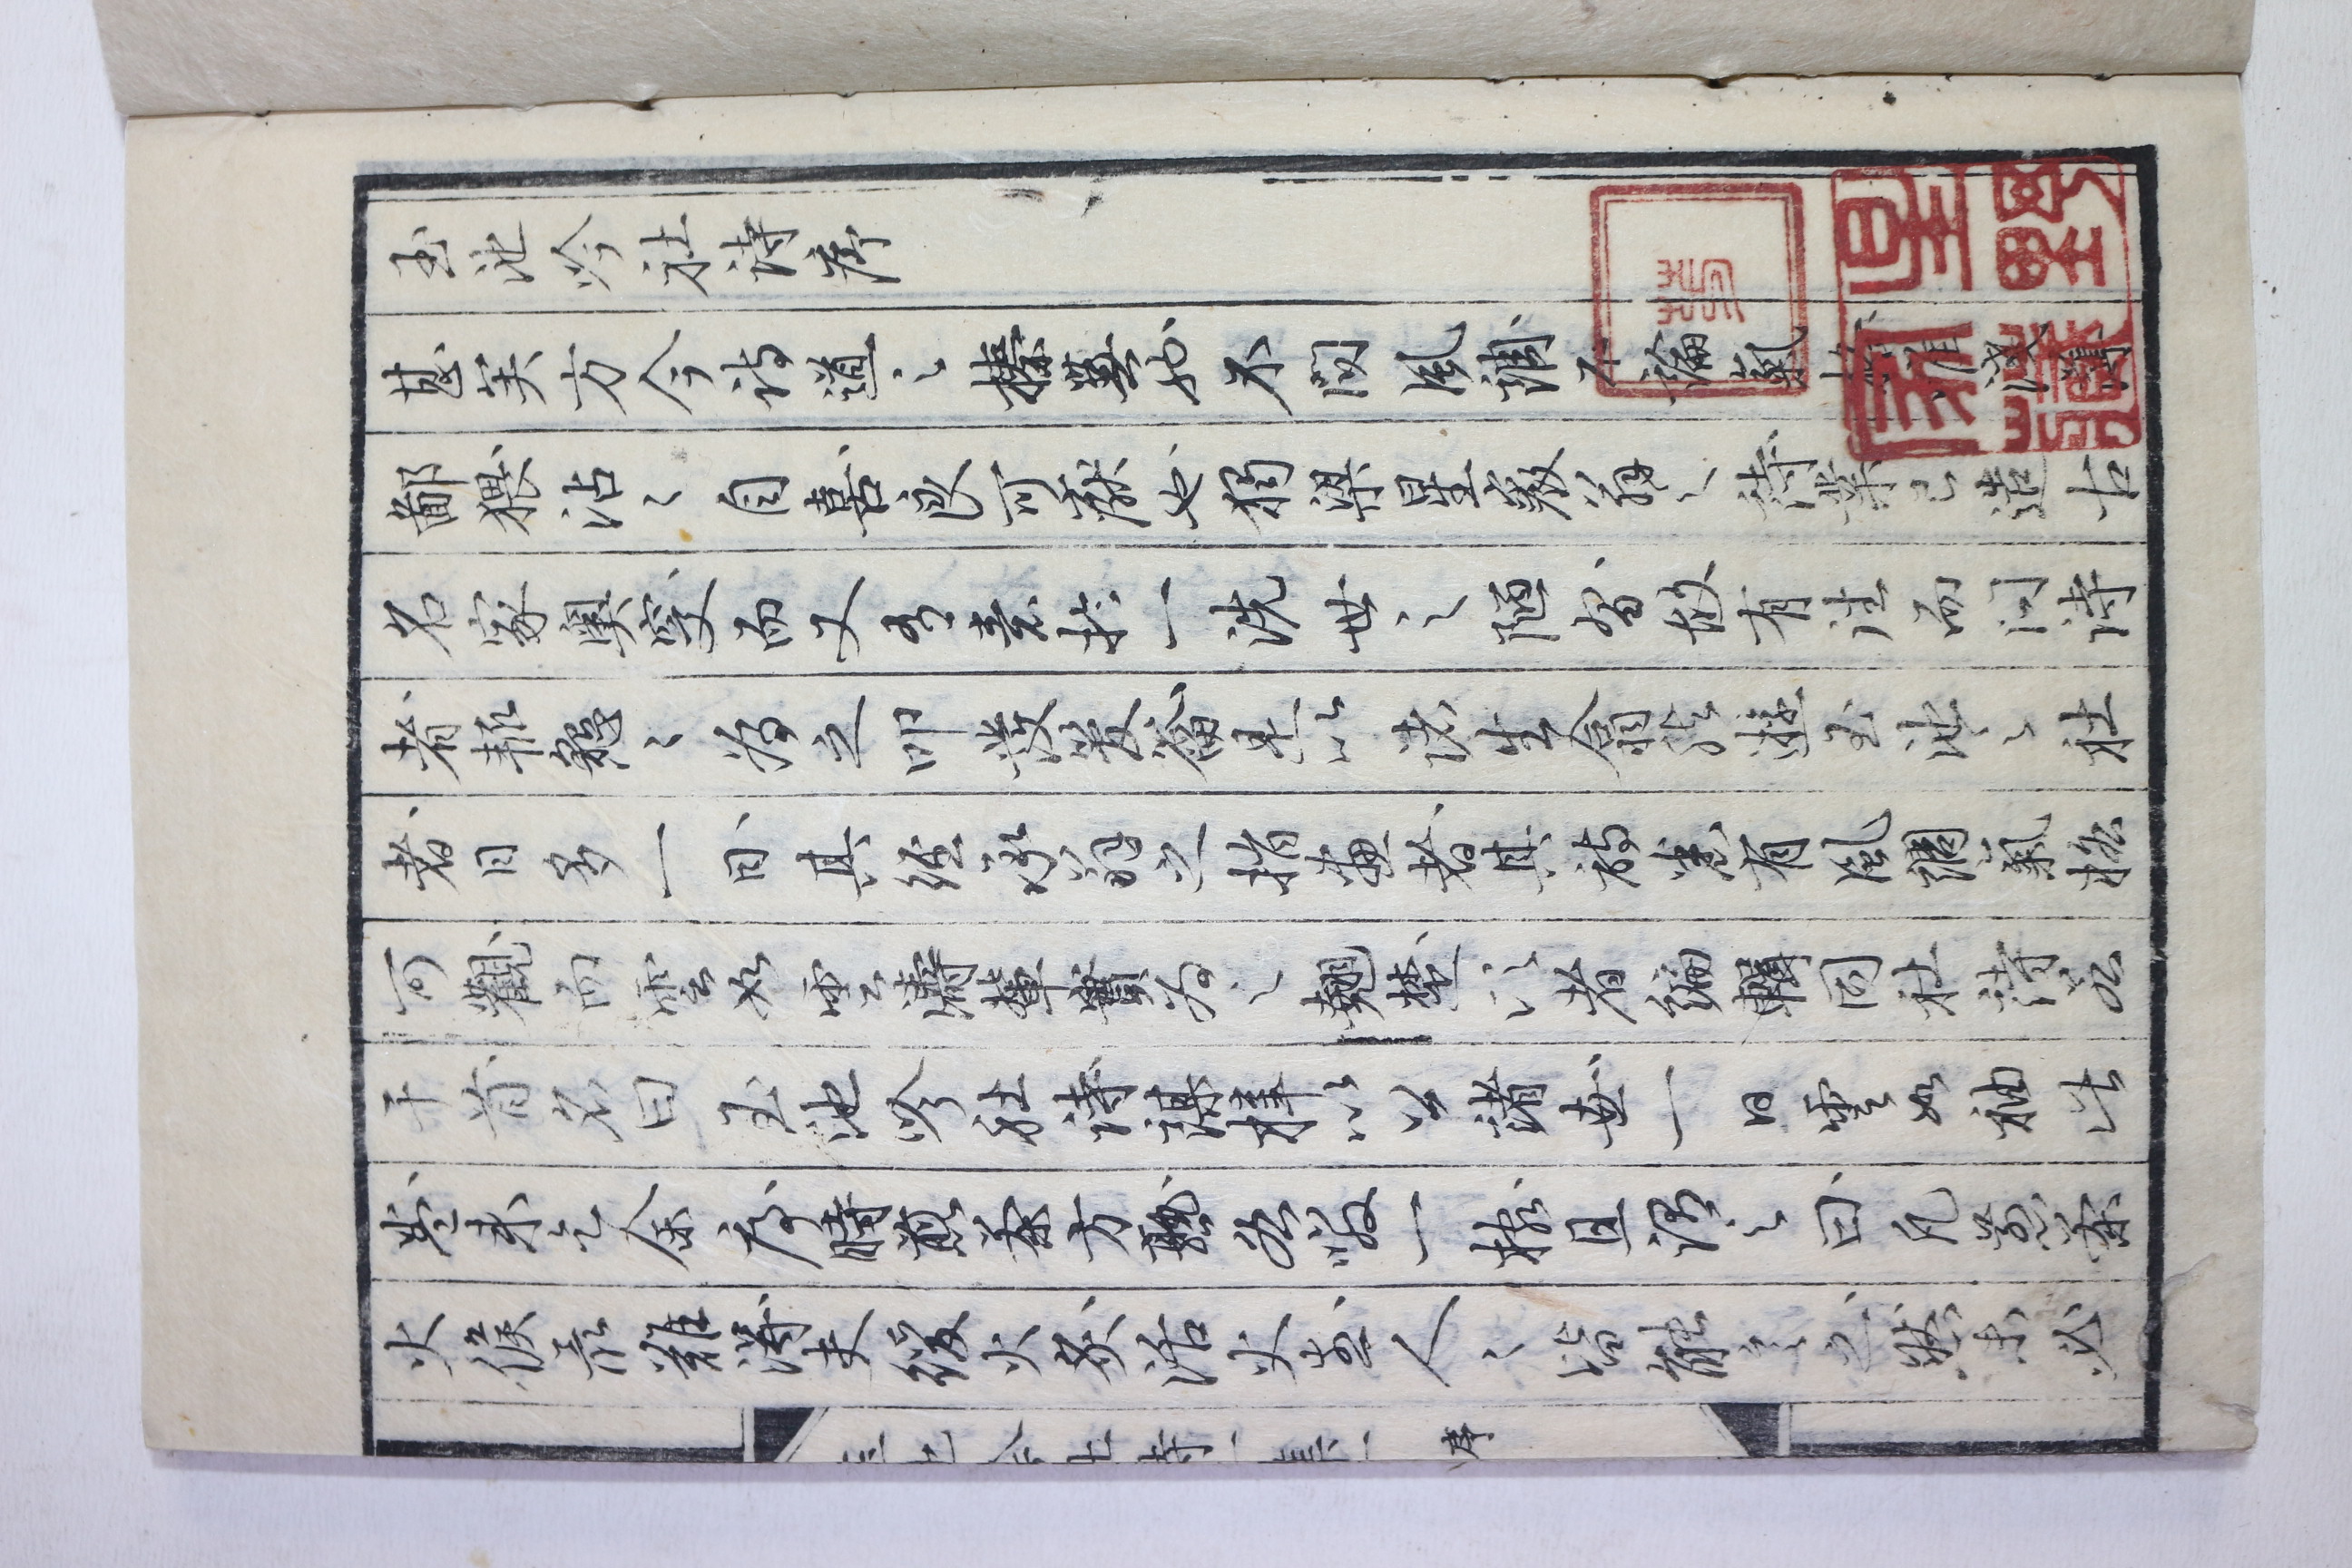 玉池吟社詩序
甚矣方今詩道之榛蕪也不問風調不論氣格唯淺薄
鄙猥沾〻自喜良可厭也獨梁星巖翁之詩業已造古
名家奧窔而又有意於一洗世之陋習故有法而問詩
者輒懇〻為之叩發篋籥是以諸生翕然遊玉池之社
者日多一日其經承翁之指畫者其詩悉有風調氣格
可觀而雲如雲濤輩實為之翹楚以者編輯同社詩若
干首名曰玉池吟社詩謀梓以公諸世一日雲如袖此
卷来乞余序時煎茶方熟乃啜一椀且謂之曰凡煎茶
火候最難得夫緩火炙活火煎人〻皆能言之然未必
序
星野家藏